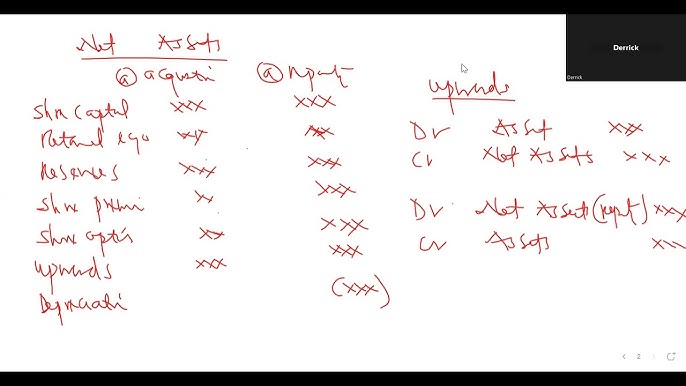 Net Assets
@ acquisti @ reporti
Share Capital xxx xxx
Retained egs xx xxx
Reserves xxx xxx
Share premi xx xxx
Share optis xx xxx
upwards xxx xxx
Depreciati (xxx)
upwards
Dr Asset xxx
Cr Net Assets xxx
Dr Net Assets (report) xxx
Cr Assets xxx
Derrick
Derrick
2